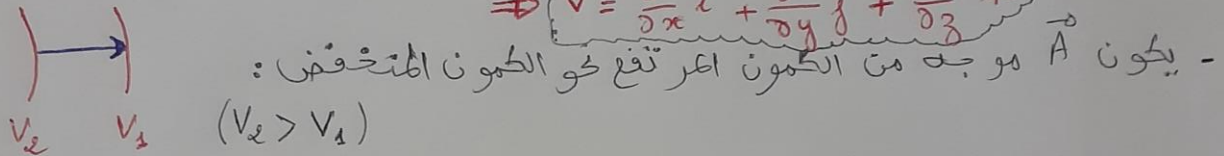 ⇒ V = ∂x i + ∂y j + ∂z
- يكون A⃗ موجه من الكمون المرتفع نحو الكمون المنخفض :
V₂ V₁ (V₂ > V₁)